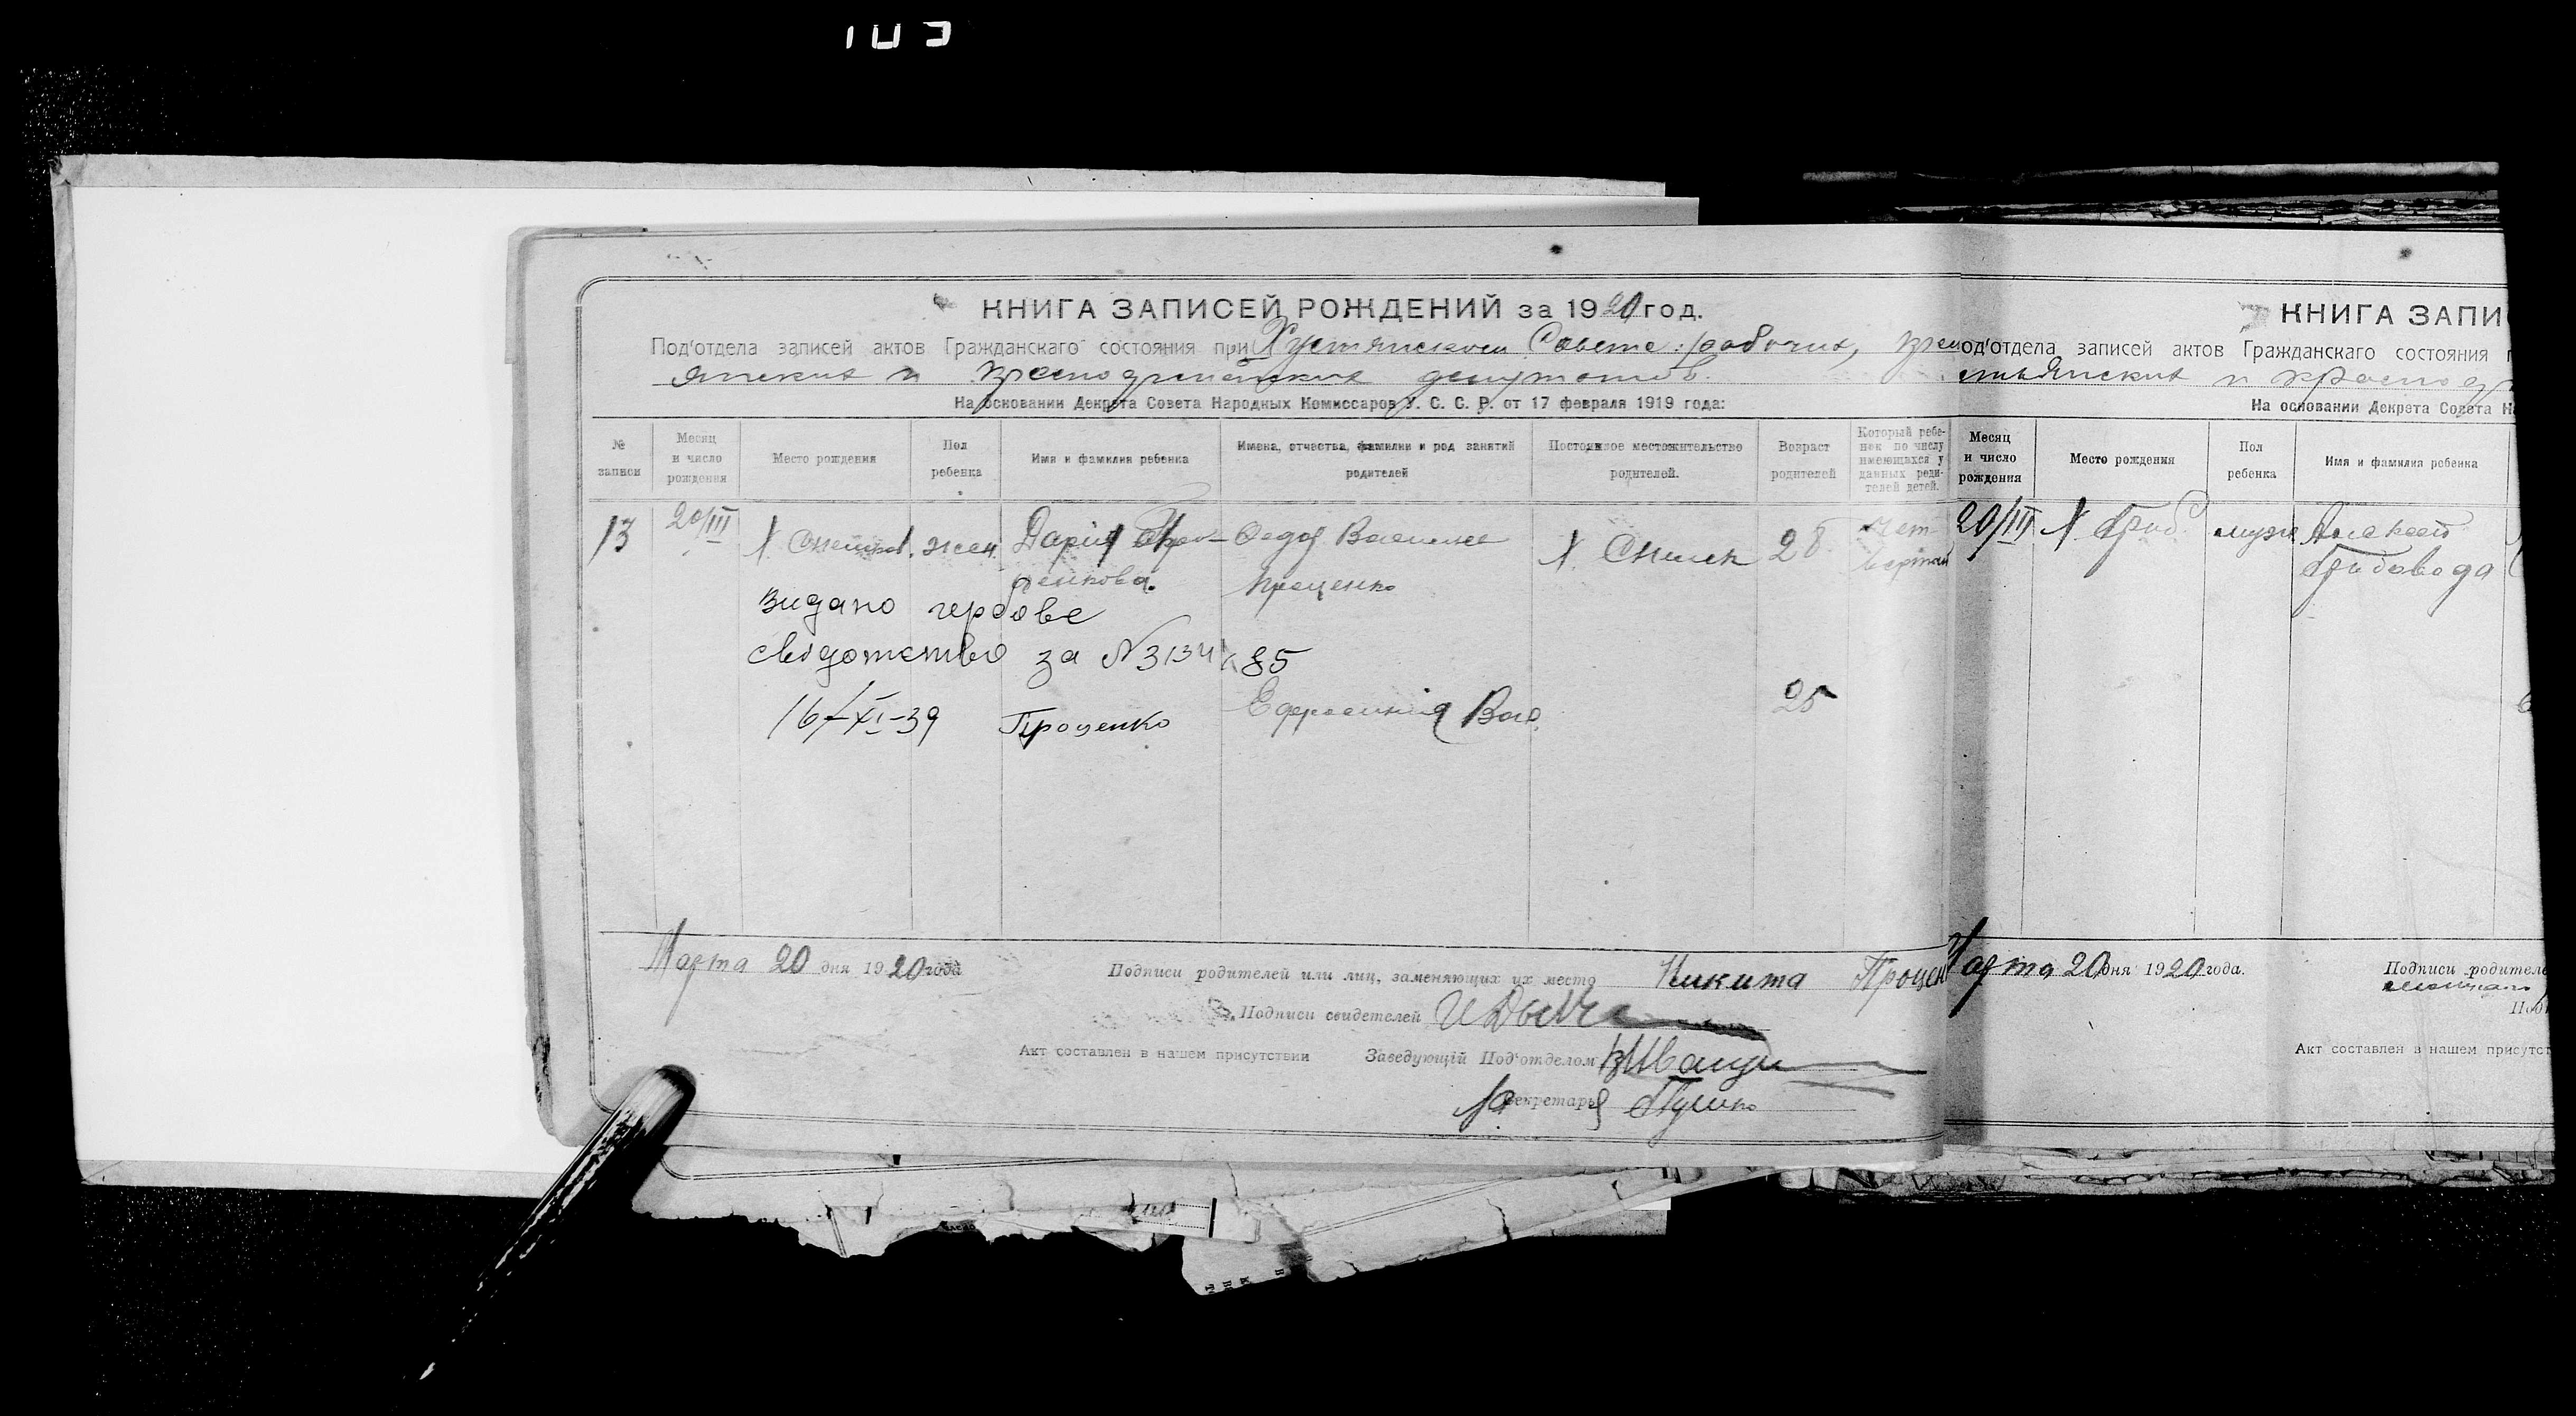 КНИГА ЗАПИСЕЙ РОЖДЕНИЙ за 1920 год.
Под'отдела записей актов Гражданскаго состояния при Хустянском Совете рабочих, крес
янских и красноармейских депутатов.
На основании Декрета Совета Народных Комиссаров У. С. С. Р. от 17 февраля 1919 года:
№ записи
Месяц и число рождения
Место рождения
Пол ребенка
Имя и фамилия ребенка
Имена, отчества, фамилии и род занятий родителей
Постоянное местожительство родителей.
Возраст родителей
Который ребенок по числу имеющахся у данных родителей детей.
13
20/III
Х.
жен.
Дария
Федор
Проценко
Х.
28
Чет-
вертый
видано гербове
свідотство за № 313485
16/XI-39 Проценко
Ефросиния Вас.
25
Марта 20 дня 1920 года
Подписи родителей или лиц, заменяющих их место Никита Процен
Подписи свидетелей
Акт составлен в нашем присутствии
Заведующій Под'отделом
Секретарь
КНИГА ЗАПИ
од'отдела записей актов Гражданскаго состояния п
На основании Декрета Совета Н
Месяц и число рождения
Место рождения
Пол ребенка
Имя и фамилия ребенка
20/III
Х.
муж
Алексей
Марта 20 дня 1920 года.
Подписи родителе
Акт составлен в нашем присутст